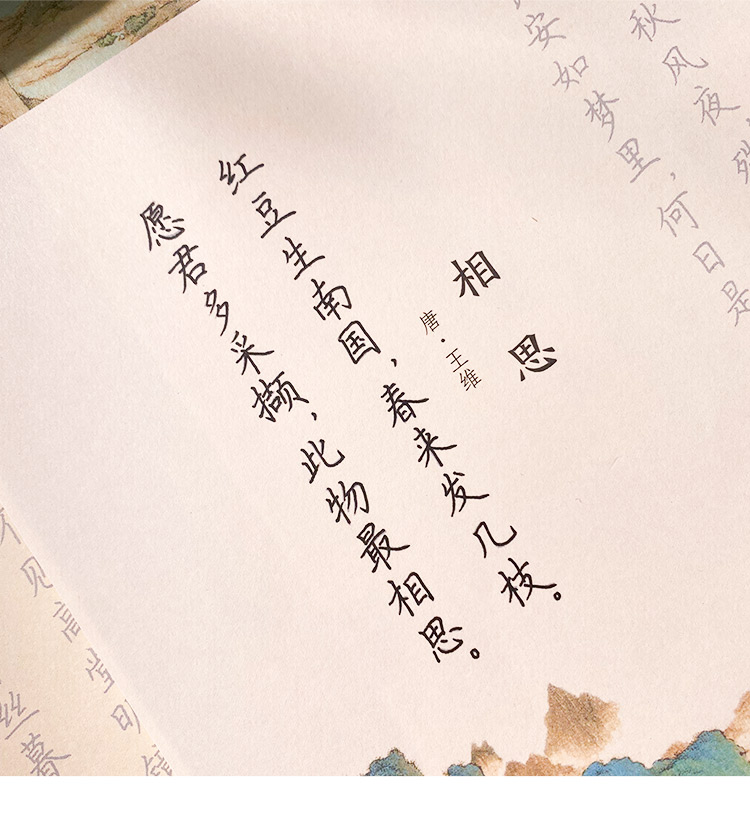 相思
唐·王维
红豆生南国，春来发几枝。
愿君多采撷，此物最相思。
秋风夜
安如梦里，何日是
不见
高堂明镜
丝暮